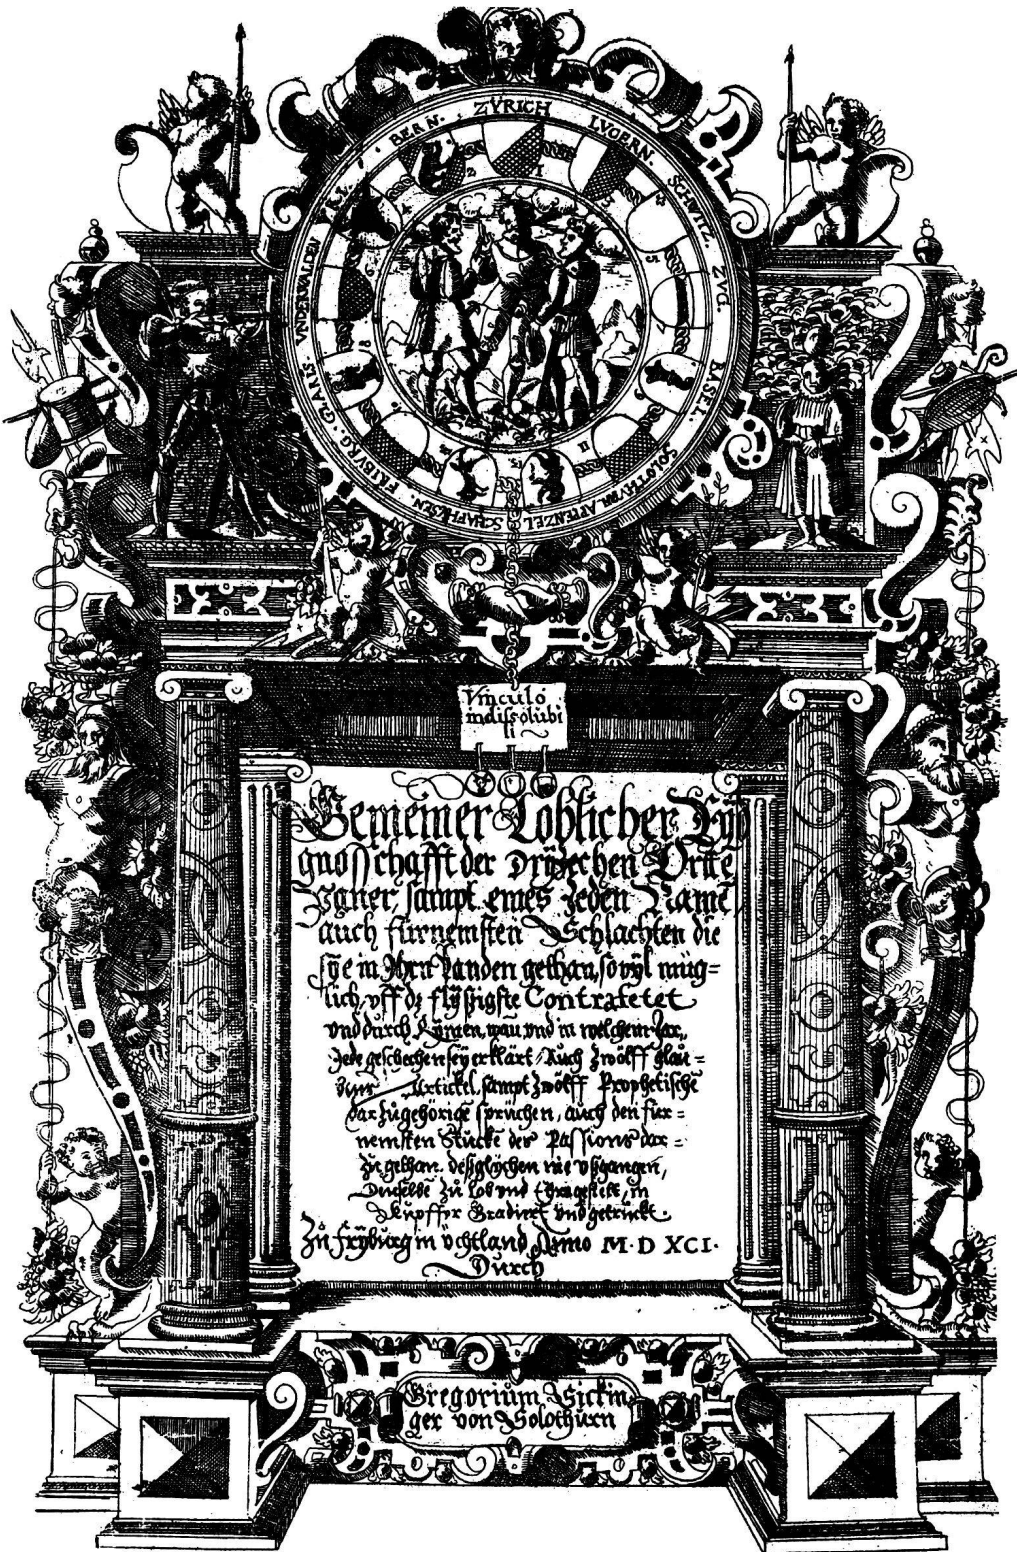 ZŸRICH
LVCERN.
SCHWITZ.
ZVG.
BASEL.
SOLOTHVRN.
APPENZEL
SCHAFHVSEN.
FRIBVRG.
GLARIS.
VNDERWALDEN
VRI.
BERN.
Vinculo
indissolubi
li
Gemeiner Loblicher Eyd
gnosschafft der dryzechen Ortte
Paner, sampt eines Jeden Namē
auch fürnemsten Schlachten die
sye in Ihrn Landen gethan, so vyl müg-
lich, vff dz flyssigste Contrafetet
vnd durch Rÿmen, wan vnd in welchem Jar,
Jede geschechen sey erklärt, Auch Zwölff glau-
Artickel, sampt Zwölff Prophetischē
darzůgehörigē sprüchen, auch den für-
nemsten Stucke der Passions dar-
zu gethan. dessglychen nie vssgangen,
Denselbē Zů Lob vnd Ehr gestelt, in
Kupffer Gradiert vnd getruckt.
Zů Fryburg in v̊chtland Anno M·D XCI·
Durch
Gregorium Sickin-
ger von Solothurn